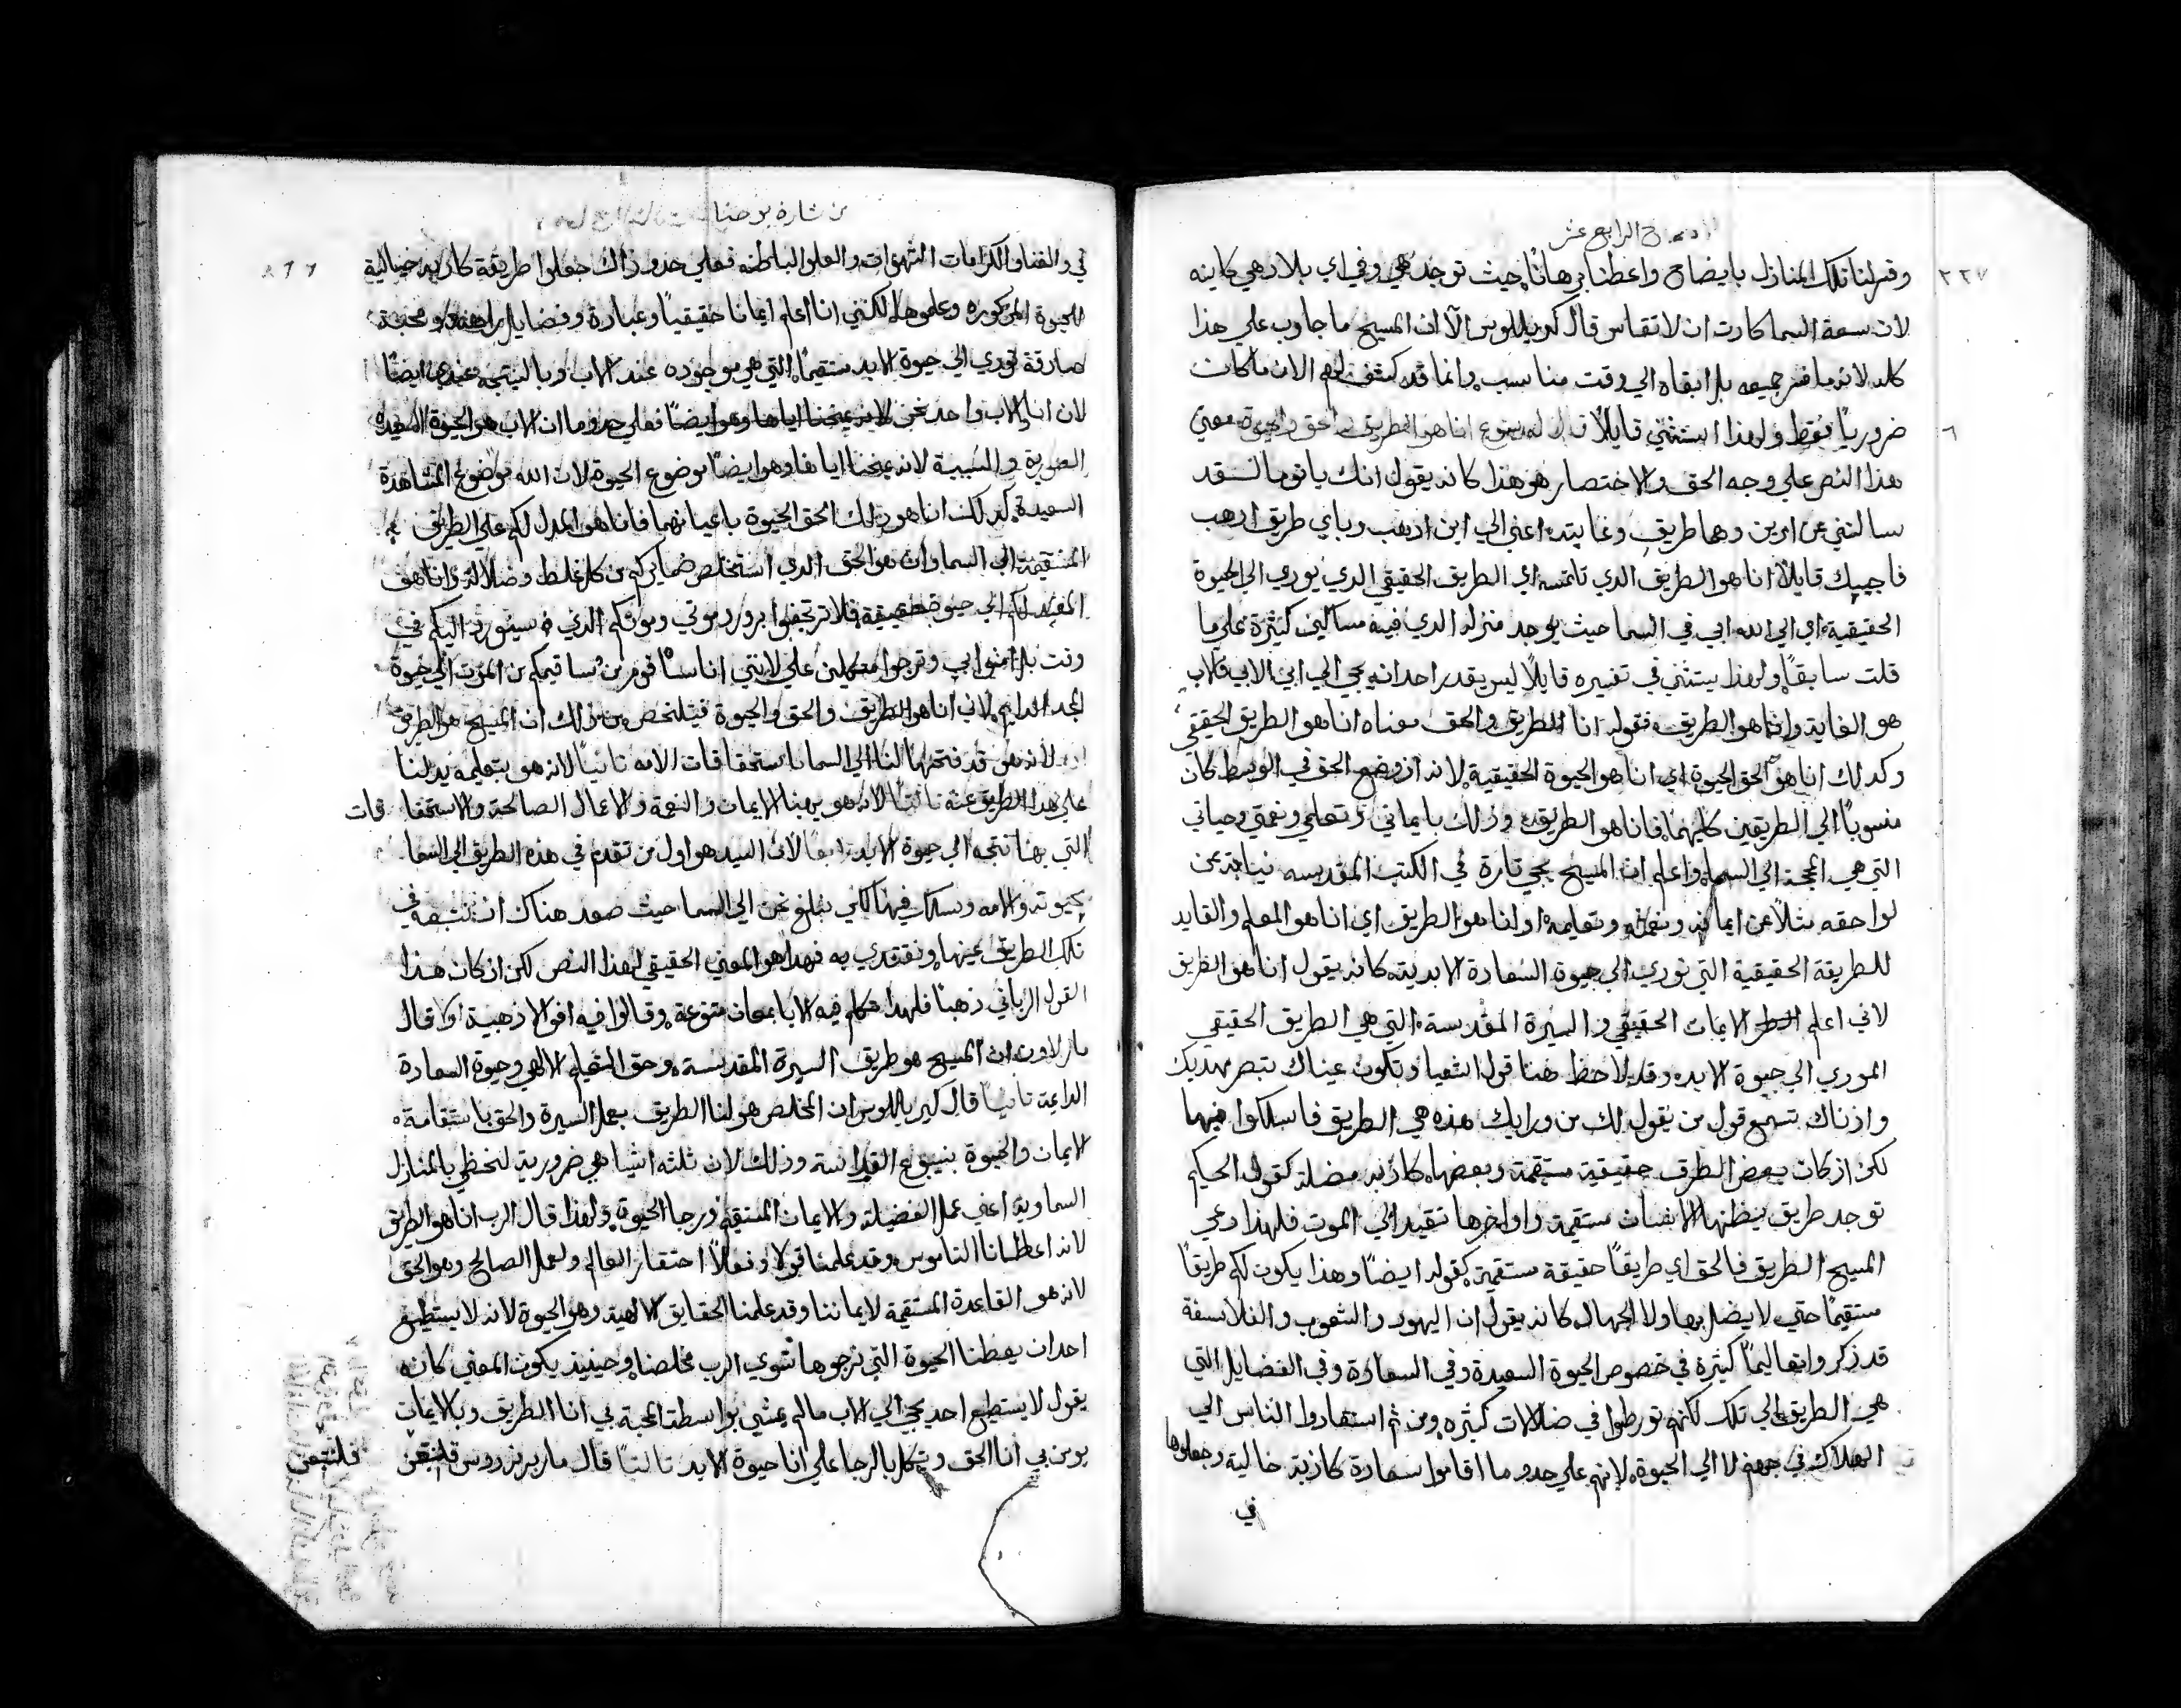 الاصحاح الرابع عشر
٢٢٧
وفسر لنا تلك المنازل بايضاح واعطنا برهانًا حيث توجد هي وفي اي بلاد هي كاينه
لان سعة السما كادت ان لا تقاس قال كيريللوس الآ ان المسيح ما جاوب علي هذا
كله لانه ما فسر جميعه بل ابقاه الي وقت مناسب وانما قد كشف لهم الان ما كان
٦
ضروريًا فقط ولهذا استثني قايلاً قال له يسوع انا هو الطريق والحق والحيوة معني
هذا النص علي وجه الحق والاختصار هو هذا كانه يقول انك يا توما لقد
سالتني عن امرين وهما طريقي وغايته اعني الي اين اذهب وباي طريق اذهب
فاجيبك قايلاً انا هو الطريق الذي تلتمسه اي الطريق الحقيقي الذي يودي الي الحيوة
الحقيقية اي الي الله ابي في السما حيث يوجد منزله الذي فيه مساكن كثيرة علي ما
قلت سابقًا ولهذا يستثني في تفسيره قايلاً ليس يقدر احد انه يجي الي ابي الا بي فالاب
هو الغايه وانا هو الطريق فقوله انا الطريق والحق معناه انا هو الطريق الحقيقي
وكذلك انا هو الحق الحيوة اي انا هو الحيوة الحقيقية لانه اذ وضع الحق في الوسط كان
منسوبًا الي الطريقين كليهما فانا هو الطريق وذلك بايماني وتعلمي ونعمتي وحياتي
التي هي المحجة الي السما واعلم ان المسيح يجي تارة في الكتب المقدسه نيابة عن
لواحقه مثلاً عن ايمانه ونعمته وتعليمه اولا انا هو الطريق اي انا هو المعلم والقايد
للطريقة الحقيقية التي تودي الي حيوة السعادة الابدية كانه يقول انا هو الطريق
لاني اعلم الايمان الحقيقي والسيرة المقدسة التي هي الطريق الحقيقي
المودي الي حيوة الابد وقد لاحظ هنا قول اشعيا وتكون عيناك تبصر مهديك
واذناك تسمع قول من يقول لك من ورايك هذه هي الطريق فاسلكوا فيها
لكن اذ كان بعض الطرق حقيقية مستقيمة وبعضها كاذبه مضلة كقول الحكيم
توجد طريق يظنها الانسان مستقيمة واواخرها تقيد الي الموت فلهذا دعي
المسيح الطريق فالحق اي طريقًا حقيقة مستقيمة كقوله ايضًا وهذا يكون لكم طريقًا
مستقيمًا حتي لا يضل بها ولا الجهال كانه يقول ان اليهود والشعوب والفلاسفة
قد ذكروا تعاليمًا كثيرة في خصوص الحيوة السعيدة وفي السعادة وفي الفضايل التي
هي الطريق الي تلك لكنهم تورطوا في ضلالات كثيره ومن ثم استقادوا الناس الي
الهلاك في جهنم لا الي الحيوة لانهم علي حدو ما اقاموا سعادة كاذبة خالية وجعلوها
في
من بشارة يوحنا
في والغنا والكرامات الشهوات والعلوم الباطله فعلي حدو ذاك جعلوا طريقة كاذبه خيالية
للحيوة المذكوره وعلموها لكنني انا اعلم ايمانا حقيقيًا وعبادة وفضايل ومحبة
صادقة تودي الي حيوة الابد مستقيمًا التي هي موجوده عند الاب وبالنتيجه عندي ايضًا
لان انا والاب واحد نحن لانه يمنحنا اياها وهو ايضًا فعلي حدو ما ان الاب هو الحيوة السعيده
الصورية والسببية لانه يمنحنا اياها وهو ايضًا موضوع الحيوة لان الله موضوع المشاهدة
السعيدة كذلك انا هو ذلك الحق الحيوة باعيانهما فانا هو المدل لكم علي الطريق
المستقيمة الي السما وانا هو الحق الذي استخلص ضمايركم من كل غلط وضلالة وانا هو
المقيد لكم الي حيوة حقيقية فلا ترتجفوا بورود موتي وموتكم الذي سيورد اليكم في
وقت بل امنوا بي وترجوا متكلين علي لانني انا اقيمكم من الموت الي حيوة
المجد الدايم لاني انا هو الطريق والحق والحيوة فيتلخص من ذلك ان المسيح هو الطريق
لانه هو قد فتحها لنا الي السما باستحقاقات الامه ثانيًا لانه هو بتعليمه يدلنا
علي هذا الطريق عينه ثالثًا لانه هو يهبنا الايمان والنعمة والاعمال الصالحة والاستحقاقات
التي بها نتجه الي حيوة الابد رابعًا لان السيد هو اول من تقدم في هذه الطريق الي السما
بحيوته والامه وسلك فيها لكي نبلغ نحن الي السما حيث صعد هناك ان نتبعه في
تلك الطريق عينها ونقتدي به فهذا هو المعني الحقيقي لهذا النص لكن اذ كان هذا
القول الرباني ذهبًا فلهذا تكلم فيه الابا بمعان متنوعة وقالوا فيه اقوالا ذهبية اولا قال
مار لاون ان المسيح هو طريق السيرة المقدسة وحق التعليم الالهي وحيوة السعادة
الدايمة ثانيًا قال كيريللوس ان المخلص هو لنا الطريق بعمل السيرة والحق باستقامة
الايمان والحيوة بينبوع القداسة وذلك لان ثلثه اشيا هي ضرورية لنحظي بالمنازل
السماوية اعني عمل الفضيلة والايمان المستقيم ورجا الحيوة ولهذا قال الرب انا هو الطريق
لانه اعطانا الناموس وقد علمنا قولاً وفعلاً احتقار العالم وعمل الصالح وهو الحق
لانه هو القاعدة المستقيمة لايماننا وقد علمنا الحقايق الالهية وهو الحيوة لانه لا يستطيع
احد ان يعطنا الحيوة التي نرجوها سوي الرب مخلصنا وحينيذ يكون المعني كانه
يقول لا يستطيع احد يجي الي الاب ما لم يمشي بواسطة المحبة بي انا الطريق وبالايمان
يومن بي انا الحق ويتكل بالرجا علي انا حيوة الابد ثالثًا قال مار برنردوس فلنتبعن
فلنتبعن